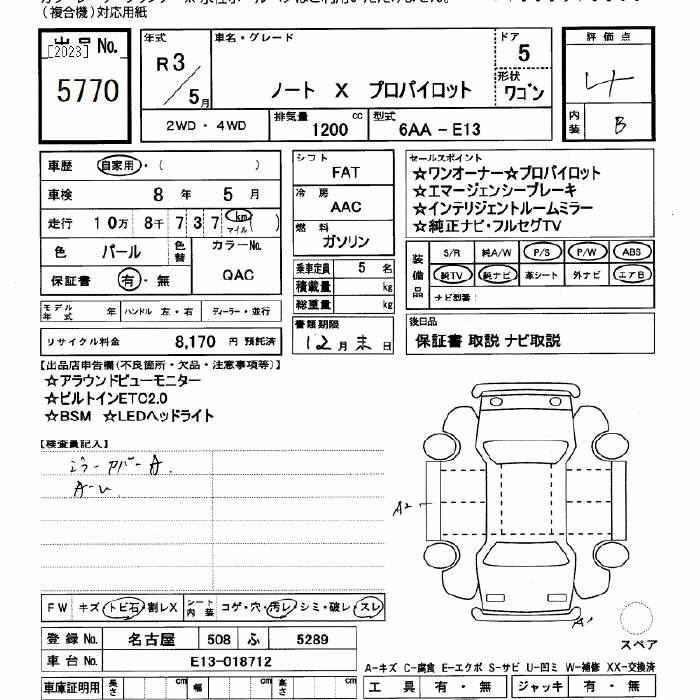 (複合機)対応用紙
出品No.
[2023]
5770
年式
R3/5月
車名・グレード
ノート X プロパイロット
ドア
5
形状
ワゴン
評価点
4
内装
B
2WD・4WD
排気量
1200 cc
型式
6AA-E13
車歴 自家用・( )
車検 8年 5月
走行 10万 8千 737 km マイル
色 パール
色替
カラーNo.
QAC
保証書 有・無
モデル年式 年 ハンドル 左・右 ディーラー・並行
リサイクル料金 8,170 円 預託済
シフト
FAT
冷房
AAC
燃料
ガソリン
乗車定員 5 名
積載量 kg
総重量 kg
書類期限
12月末日
セールスポイント
☆ワンオーナー☆プロパイロット
☆エマージェンシーブレーキ
☆インテリジェントルームミラー
☆純正ナビ・フルセグTV
装備品
S/R 純A/W P/S P/W ABS
純TV 純ナビ 革シート 外ナビ エアB
ナビ型番:
後日品
保証書 取説 ナビ取説
【出品店申告欄(不良箇所・欠品・注意事項等)】
☆アラウンドビューモニター
☆ビルトインETC2.0
☆BSM ☆LEDヘッドライト
【検査員記入】
ミラーカバーA.
A-U
A2
A1
スペア
FW キズ・トビ石・割レX
シート内装 コゲ・穴・汚レ・シミ・破レ・スレ
登録No. 名古屋 508 ふ 5289
車台No. E13-018712
車庫証明用 長さ cm 幅 cm 高さ cm
A-キズ C-腐食 E-エクボ S-サビ U-凹ミ W-補修 XX-交換済
工具 有・無 ジャッキ 有・無